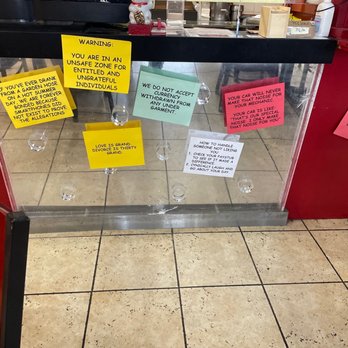 WARNING:
YOU ARE IN AN
UNSAFE ZONE FOR
ENTITLED AND
UNGRATEFUL
INDIVIDUALS
IF YOU'VE EVER DRANK
FROM A GARDEN HOSE
ON A HOT SUMMER
DAY, WE ARE FOREVER
BONDED BECAUSE
SMARTPHONES DID
NOT EXIST TO PROVE
THE ALLEGATIONS
WE DO NOT ACCEPT
CURRENCY
WITHDRAWN FROM
ANY UNDER
GARMENT
YOUR CAR WILL NEVER
MAKE THAT NOISE FOR
YOUR MECHANIC
YOUR CAR IS LIKE,
THAT'S OUR SPECIAL
NOISE, I ONLY MAKE
THAT FOR YOU
LOVE IS GRAND
DIVORCE IS THIRTY
GRAND
HOW TO HANDLE
SOMEONE NOT LIKING
YOU
1. CHECK YOUR PAYSTUB
TO SEE IF IT MADE A
DIFFERENCE
2. CYNICALLY LAUGH AND
GO ABOUT YOUR DAY